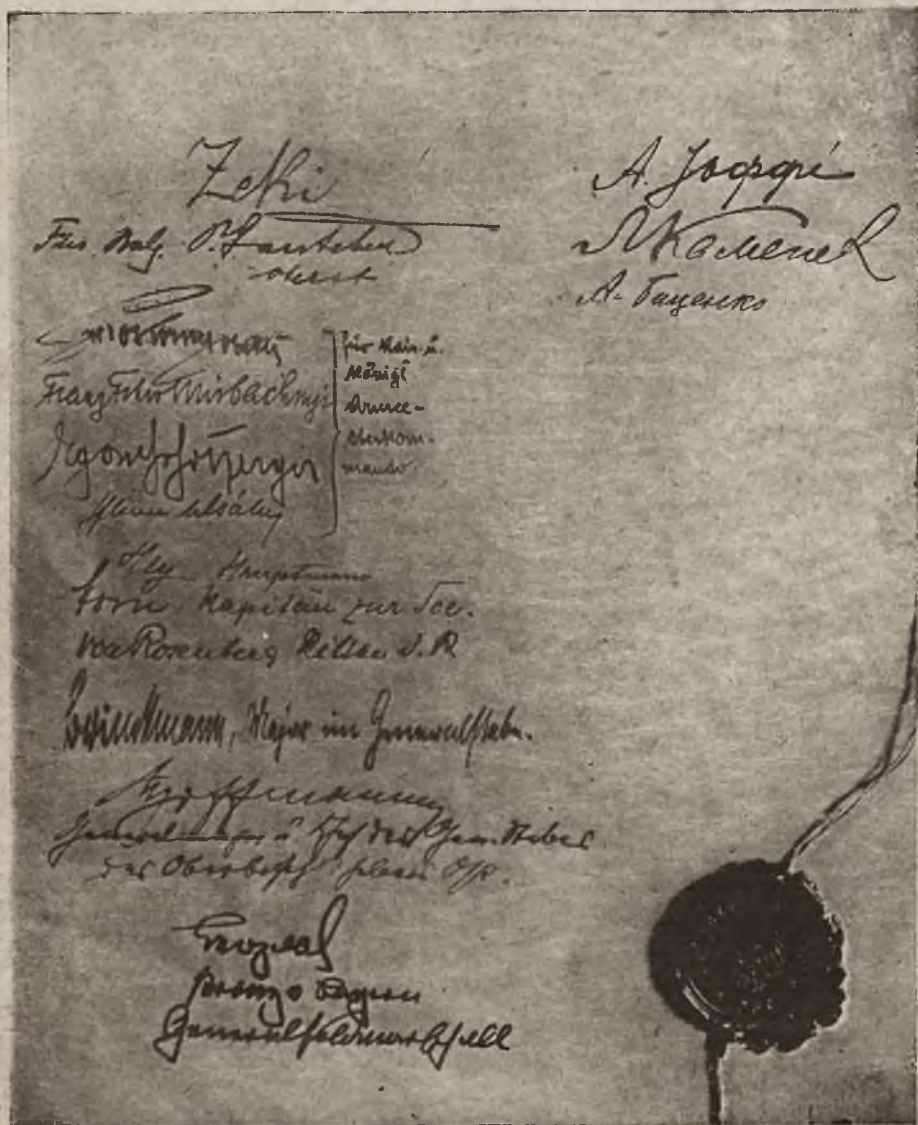 Zeki
Für Bulg. P. Gantchew
Oberst
Franz Frhr Mirbach
für Kais. u.
Königl
Armee-
oberkom-
mando.
Hey Hauptmann
Horn Kapitän zur See.
von Rosenberg d. R
Brinckmann, Major im Generalstabe.
Hoffmann
Generalmajor u Chef des Gen. Stabes
des Oberbefh
Leopold
Prinz v Bayern
Generalfeldmarschall
А. Іоффе
Л Каменев
А. Биценко